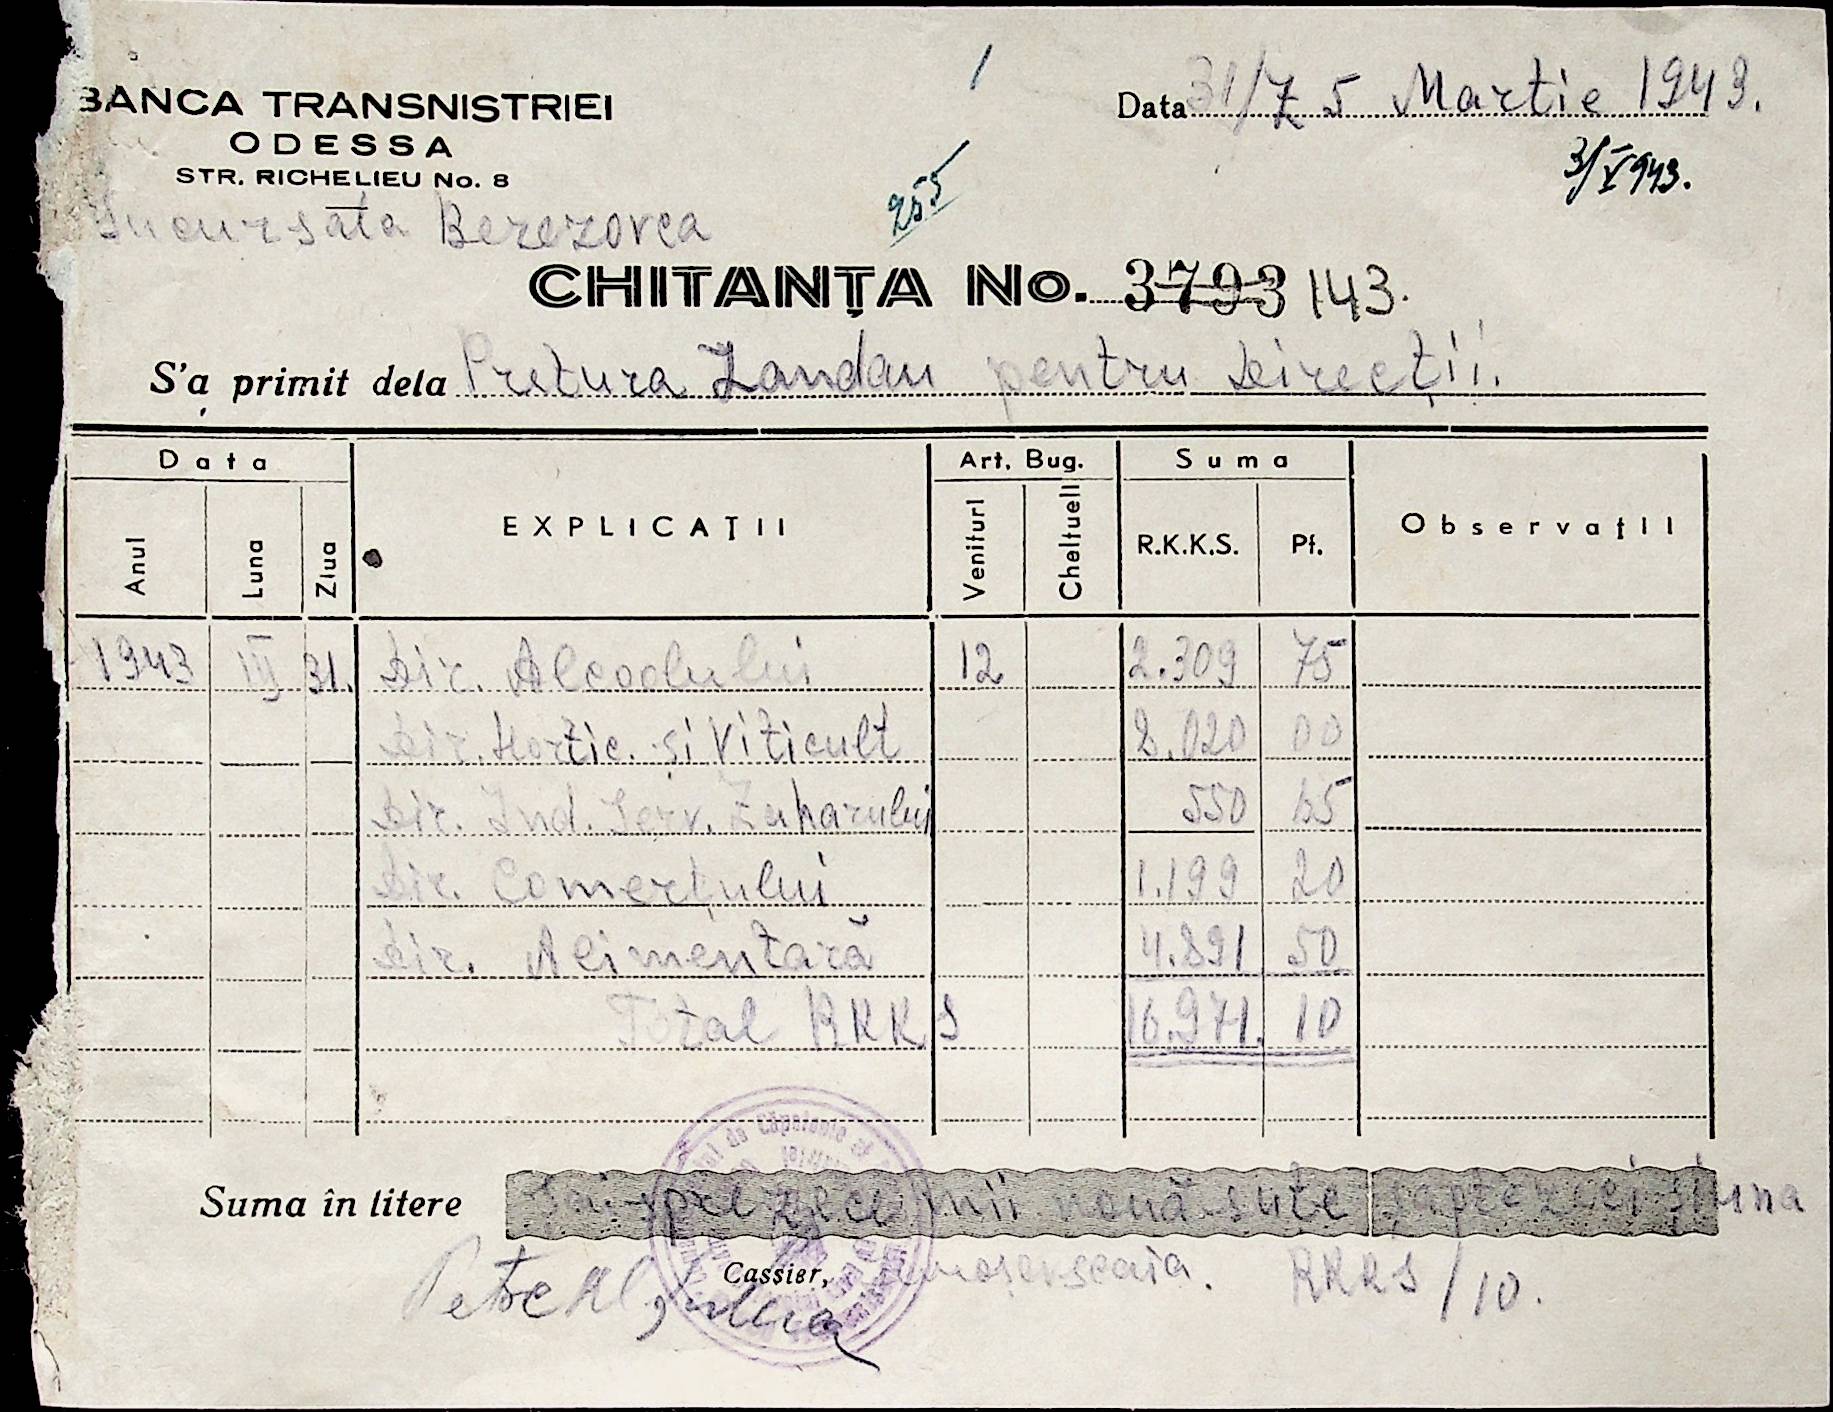 BANCA TRANSNISTRIEI
ODESSA
STR. RICHELIEU No. 8
Sucursala Berezovca
Data 31/ 5 Martie 1943.
3/V943.
255
CHITANȚA No. 3793 143.
S'a primit dela Pretura Landau pentru Direcții.
Data
EXPLICAȚII
Art. Bug.
Suma
Observații
Anul
Luna
Ziua
Venituri
Cheltueli
R.K.K.S.
Pf.
1943 III 31. Dir. Alcoolului 12 2.309 75
Dir. Hortic. și Viticult 8.020 00
Dir. Ind. Ferv. Zaharului 550 65
Dir. Comerțului 1.199 20
Dir. Alimentară 4.891 50
Total RKKS 16.971. 10
Suma în litere șai-spre zece mii nouă sute șaptezeci și una
RKKS/10.
Cassier,
Petre